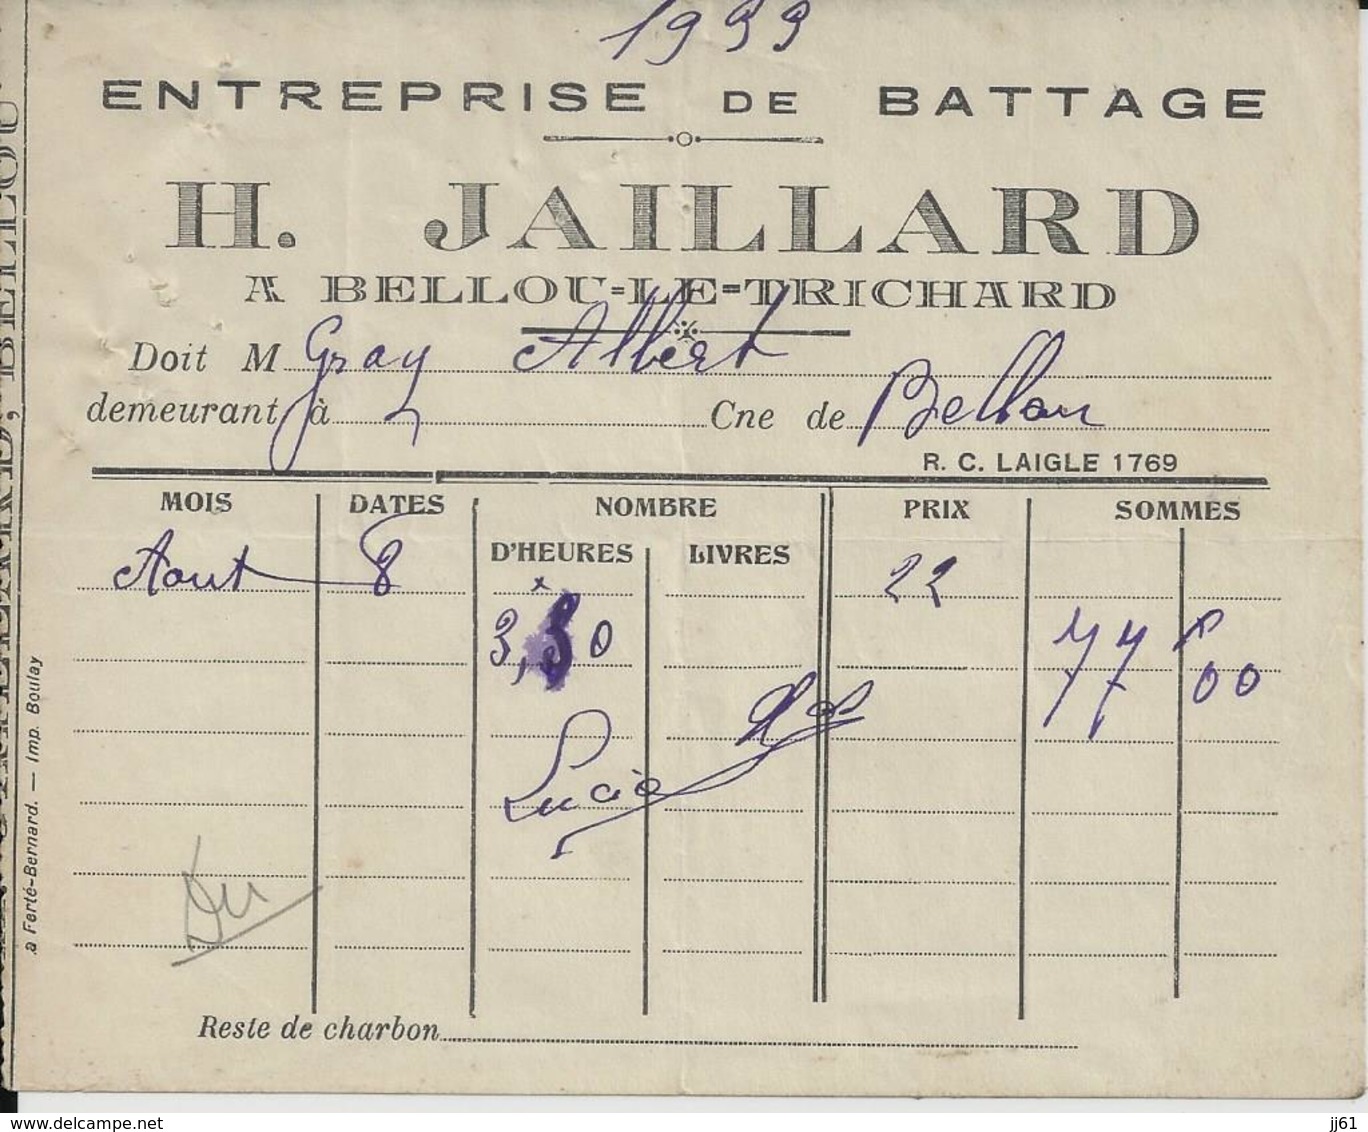 1933
ENTREPRISE DE BATTAGE
H. JAILLARD
A BELLOU-LE-TRICHARD
Doit M Gray Albert
demeurant à Cne de Bellou
R. C. LAIGLE 1769
MOIS DATES NOMBRE PRIX SOMMES
D'HEURES LIVRES
Aout 8 22
3,50 77 00
Lucie
Du
Reste de charbon
a Ferté-Bernard. — Imp. Boulay
jj61
www.delcampe.net